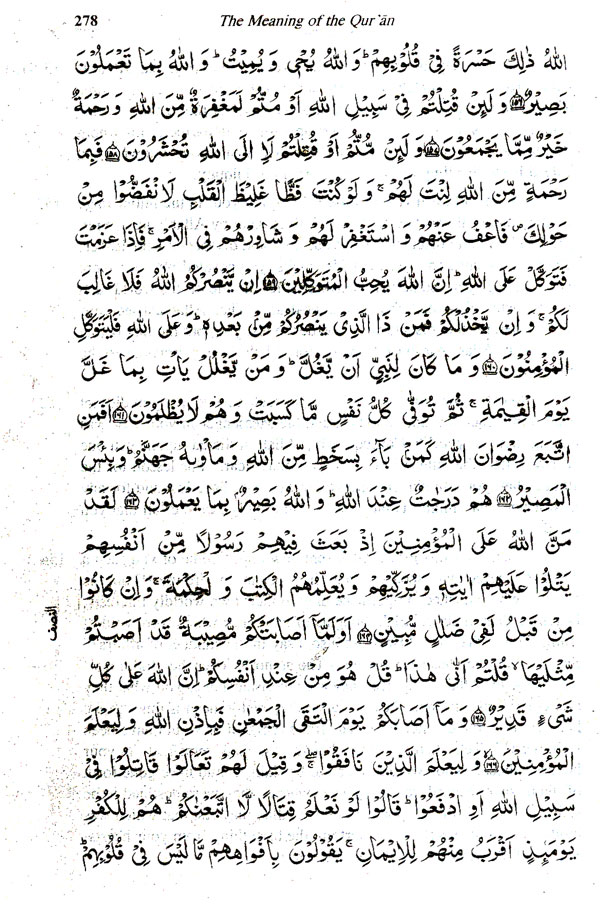 278
The Meaning of the Qur'ān
اللهُ ذٰلِكَ حَسْرَةً فِىْ قُلُوْبِهِمْ ؕ وَاللهُ يُحْىٖ وَ يُمِيْتُ ؕ وَاللهُ بِمَا تَعْمَلُوْنَ
بَصِيْرٌ ﴿۱۵۶﴾ وَ لَئِنْ قُتِلْتُمْ فِىْ سَبِيْلِ اللهِ اَوْ مُتُّمْ لَمَغْفِرَةٌ مِّنَ اللهِ وَ رَحْمَةٌ
خَيْرٌ مِّمَّا يَجْمَعُوْنَ ﴿۱۵۷﴾ وَ لَئِنْ مُّتُّمْ اَوْ قُتِلْتُمْ لَاِ الَى اللهِ تُحْشَرُوْنَ ﴿۱۵۸﴾ فَبِمَا
رَحْمَةٍ مِّنَ اللهِ لِنْتَ لَهُمْ ۚ وَ لَوْ كُنْتَ فَظًّا غَلِيْظَ الْقَلْبِ لَا نْفَضُّوْا مِنْ
حَوْلِكَ ۪ فَاعْفُ عَنْهُمْ وَ اسْتَغْفِرْ لَهُمْ وَ شَاوِرْهُمْ فِى الْاَمْرِ ۚ فَاِذَا عَزَمْتَ
فَتَوَكَّلْ عَلَى اللهِ ؕ اِنَّ اللهَ يُحِبُّ الْمُتَوَكِّلِيْنَ ﴿۱۵۹﴾ اِنْ يَّنْصُرْكُمُ اللهُ فَلَا غَالِبَ
لَكُمْ ۚ وَ اِنْ يَّخْذُلْكُمْ فَمَنْ ذَا الَّذِىْ يَنْصُرُكُمْ مِّنْۢ بَعْدِهٖ ؕ وَ عَلَى اللهِ فَلْيَتَوَكَّلِ
الْمُؤْمِنُوْنَ ﴿۱۶۰﴾ وَ مَا كَانَ لِنَبِىٍّ اَنْ يَّغُلَّ ؕ وَ مَنْ يَّغْلُلْ يَاْتِ بِمَا غَلَّ
يَوْمَ الْقِيٰمَةِ ۚ ثُمَّ تُوَفّٰى كُلُّ نَفْسٍ مَّا كَسَبَتْ وَ هُمْ لَا يُظْلَمُوْنَ ﴿۱۶۱﴾ اَفَمَنِ
اتَّبَعَ رِضْوَانَ اللهِ كَمَنْۢ بَآءَ بِسَخَطٍ مِّنَ اللهِ وَ مَاْوٰىهُ جَهَنَّمُ ؕ وَ بِئْسَ
الْمَصِيْرُ ﴿۱۶۲﴾ هُمْ دَرَجٰتٌ عِنْدَ اللهِ ؕ وَ اللهُ بَصِيْرٌۢ بِمَا يَعْمَلُوْنَ ﴿۱۶۳﴾ لَقَدْ
مَنَّ اللهُ عَلَى الْمُؤْمِنِيْنَ اِذْ بَعَثَ فِيْهِمْ رَسُوْلًا مِّنْ اَنْفُسِهِمْ
يَتْلُوْا عَلَيْهِمْ اٰيٰتِهٖ وَ يُزَكِّيْهِمْ وَ يُعَلِّمُهُمُ الْكِتٰبَ وَ لْحِكْمَةَ ۚ وَ اِنْ كَانُوْا
مِنْ قَبْلُ لَفِىْ ضَلٰلٍ مُّبِيْنٍ ﴿۱۶۴﴾ اَوَ لَمَّاۤ اَصَابَتْكُمْ مُّصِيْبَةٌ قَدْ اَصَبْتُمْ
مِّثْلَيْهَا ۙ قُلْتُمْ اَنّٰى هٰذَا ؕ قُلْ هُوَ مِنْ عِنْدِ اَنْفُسِكُمْ ؕ اِنَّ اللهَ عَلٰى كُلِّ
شَىْءٍ قَدِيْرٌ ﴿۱۶۵﴾ وَ مَاۤ اَصَابَكُمْ يَوْمَ الْتَقَى الْجَمْعٰنِ فَبِاِذْنِ اللهِ وَ لِيَعْلَمَ
الْمُؤْمِنِيْنَ ﴿۱۶۶﴾ وَ لِيَعْلَمَ الَّذِيْنَ نَافَقُوْا ۖۚ وَ قِيْلَ لَهُمْ تَعَالَوْا قَاتِلُوْا فِىْ
سَبِيْلِ اللهِ اَوِ ادْفَعُوْا ؕ قَالُوْا لَوْ نَعْلَمُ قِتَالًا لَّا اتَّبَعْنٰكُمْ ؕ هُمْ لِلْكُفْرِ
يَوْمَئِذٍ اَقْرَبُ مِنْهُمْ لِلْاِيْمَانِ ۚ يَقُوْلُوْنَ بِاَفْوَاهِهِمْ مَّا لَيْسَ فِىْ قُلُوْبِهِمْ ؕ
النصف